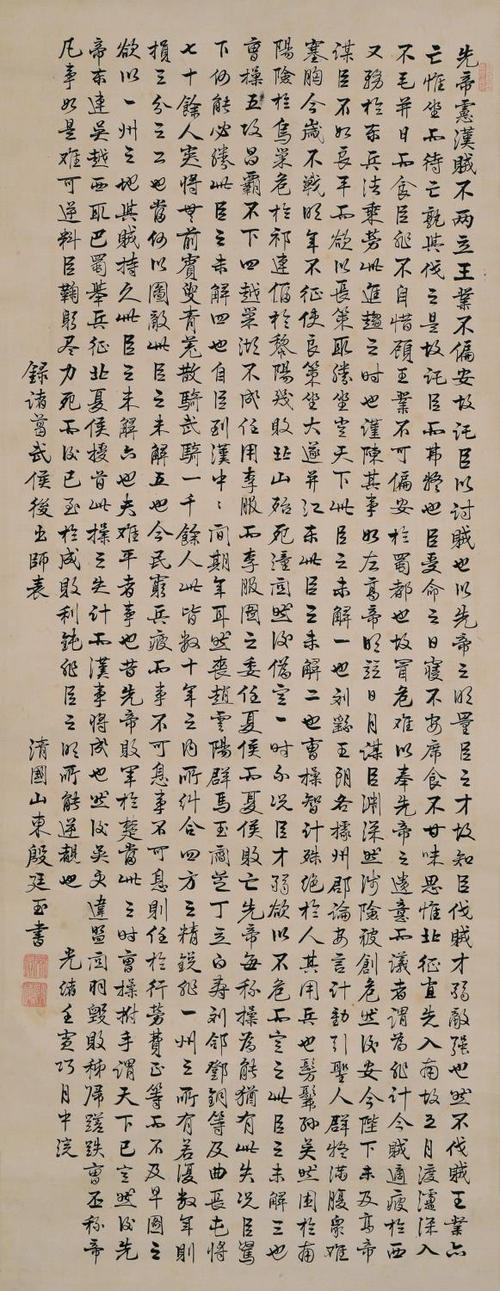 先帝慮漢賊不两立王業不偏安故託臣以討賊也以先帝之明量臣之才故知臣伐賊才弱敵强也然不伐賊王業亦
亡惟坐而待亡孰與伐之是故託臣而弗疑也臣受命之日寢不安席食不甘味思惟北征宜先入南故五月渡瀘深入
不毛并日而食臣非不自惜顧王業不可偏安於蜀都也故冒危難以奉先帝之遺意而議者謂為非計今賊適疲於西
又務於東兵法乘勞此進趨之時也謹陳其事如左高帝明並日月謀臣淵深然涉險被創危然後安今陛下未及高帝
謀臣不如良平而欲以長策取勝坐定天下此臣之未解一也刘繇王朗各據州郡論安言計動引聖人群疑滿腹眾難
塞胸今歲不戰明年不征使孫策坐大遂并江東此臣之未解二也曹操智計殊絕於人其用兵也髣髴孫吳然困於南
陽險於烏巢危於祁連偪於黎陽幾敗北山殆死潼關然後僞定一時尔况臣才弱欲以不危而定之此臣之未解三也
曹操五攻昌霸不下四越巢湖不成任用李服而李服圖之委任夏侯而夏侯敗亡先帝每称操為能猶有此失况臣駑
下何能必勝此臣之未解四也自臣到漢中中間期年耳然喪趙雲陽群馬玉閻芝丁立白寿刘郃鄧銅等及曲長屯將
七十餘人突將無前賨叟青羌散騎武騎一千餘人此皆數十年之内所糾合四方之精銳非一州之所有若復數年則
損三分之二也當何以圖敵此臣之未解五也今民窮兵疲而事不可息事不可息則任於行勞費正等而不及早圖之
欲以一州之地與賊持久此臣之未解六也夫難平者事也昔先帝敗軍於楚當此之時曹操拊手謂天下已定然後先
帝東連吳越西取巴蜀舉兵征北夏侯授首此操之失計而漢事將成也然後吳更違盟關羽毀敗秭歸蹉跌曹丕称帝
凡事如是難可逆料臣鞠躬尽力死而後已至於成敗利鈍非臣之明所能逆覩也 光緒壬寅巧月中浣
録诸葛武侯後出師表 清國山東殷廷玉書